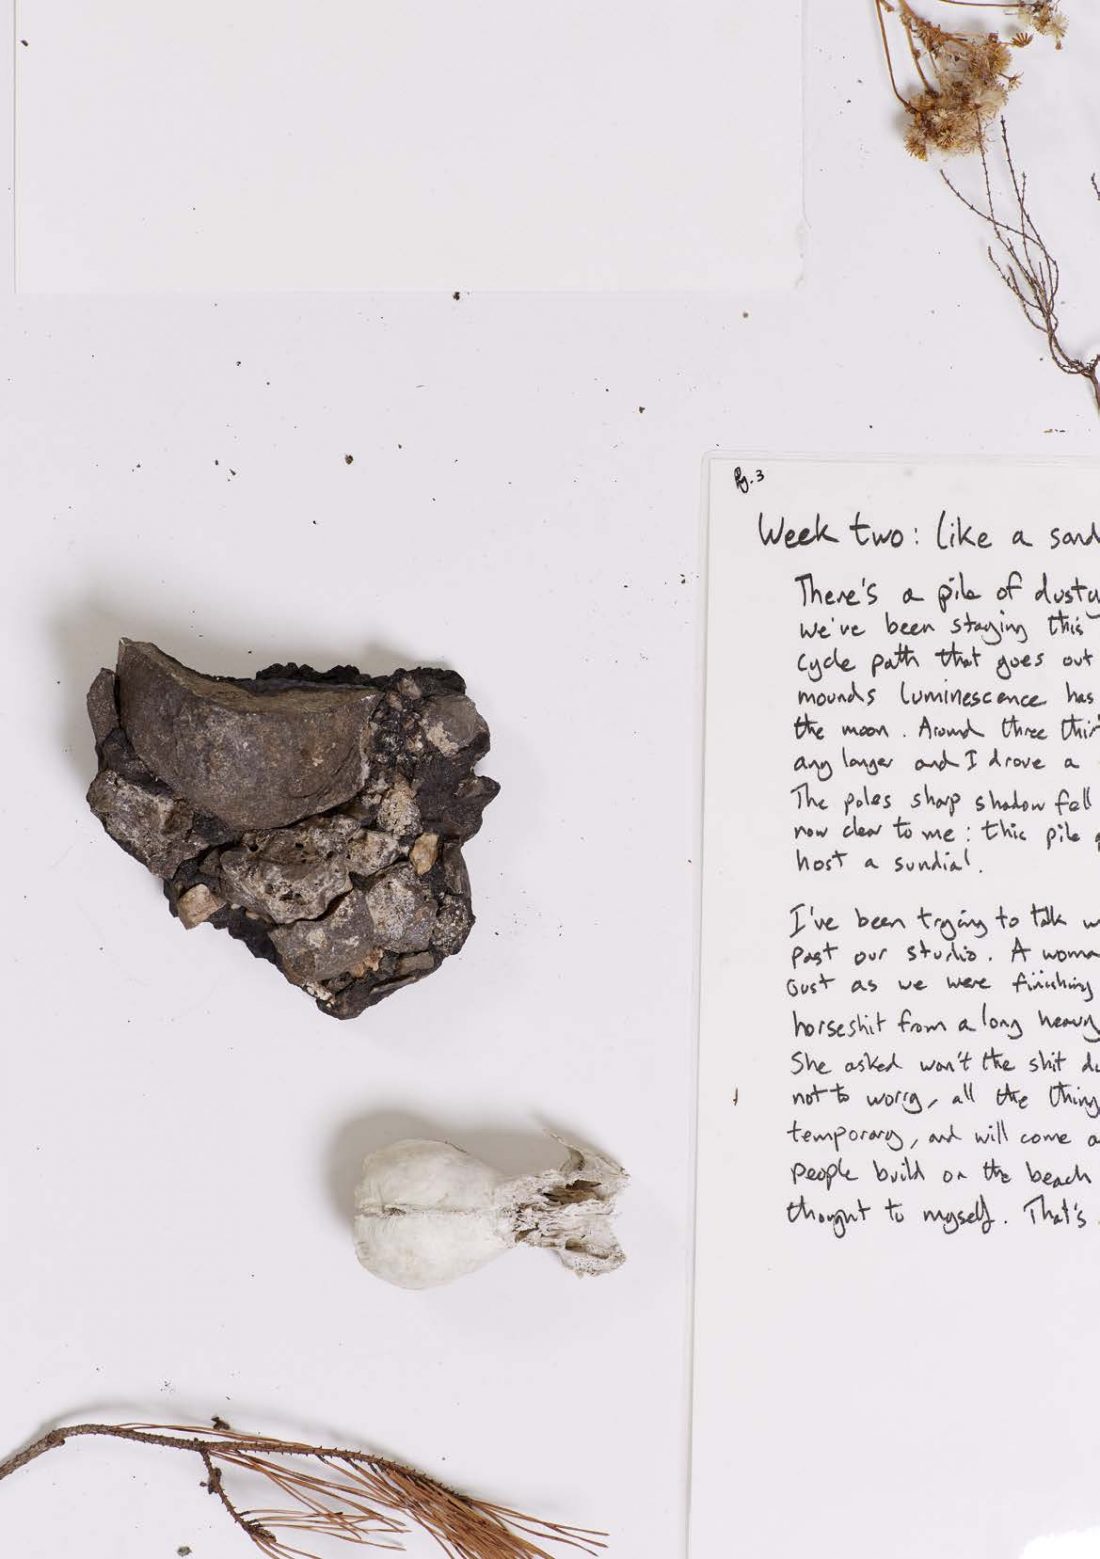 Pg. 3
Week two: like a sand
There's a pile of dusty
we've been staying this
cycle path that goes out
mounds luminescence has
the moon. Around three thirt
any longer and I drove a
The poles sharp shadow fell
now clear to me: this pile
host a sundial.
I've been trying to talk w
past our studio. A woma
Just as we were finishing
horseshit from a long heavy
She asked won't the shit du
not to worry, all the thing
temporary, and will come a
people build on the beach
thought to myself. That's